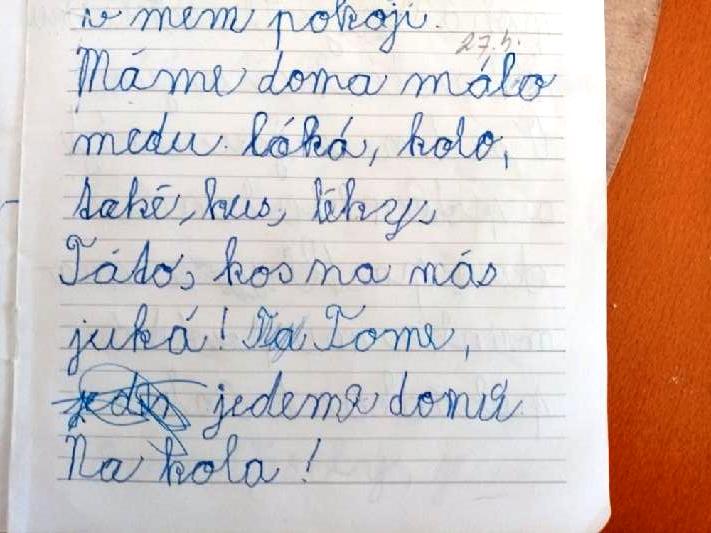 v mém pokoji.
27.5.
Máme doma málo
medu. láká, kolo,
také, kus, léky,
Táto, kos na nás
juká! Tome,
jedeme domů
Na kola!